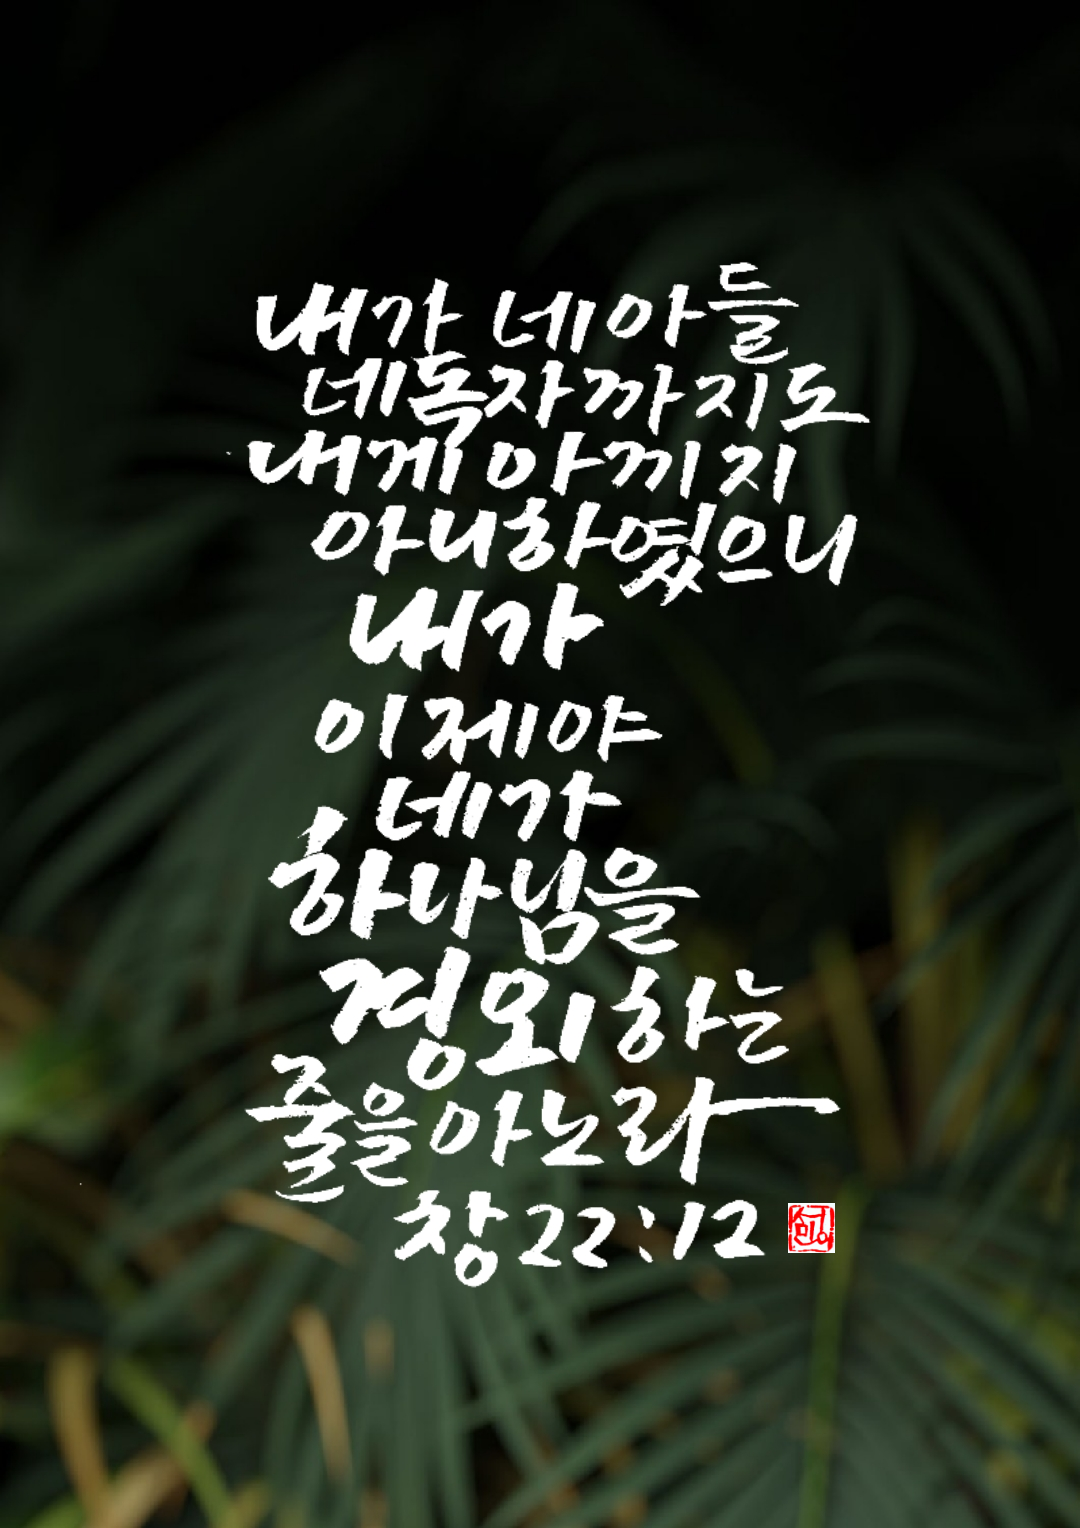 내가 네 아들
네 독자까지도
내게 아끼지
아니하였으니
내가
이제야
네가
하나님을
경외하는
줄을 아노라
창 22:12